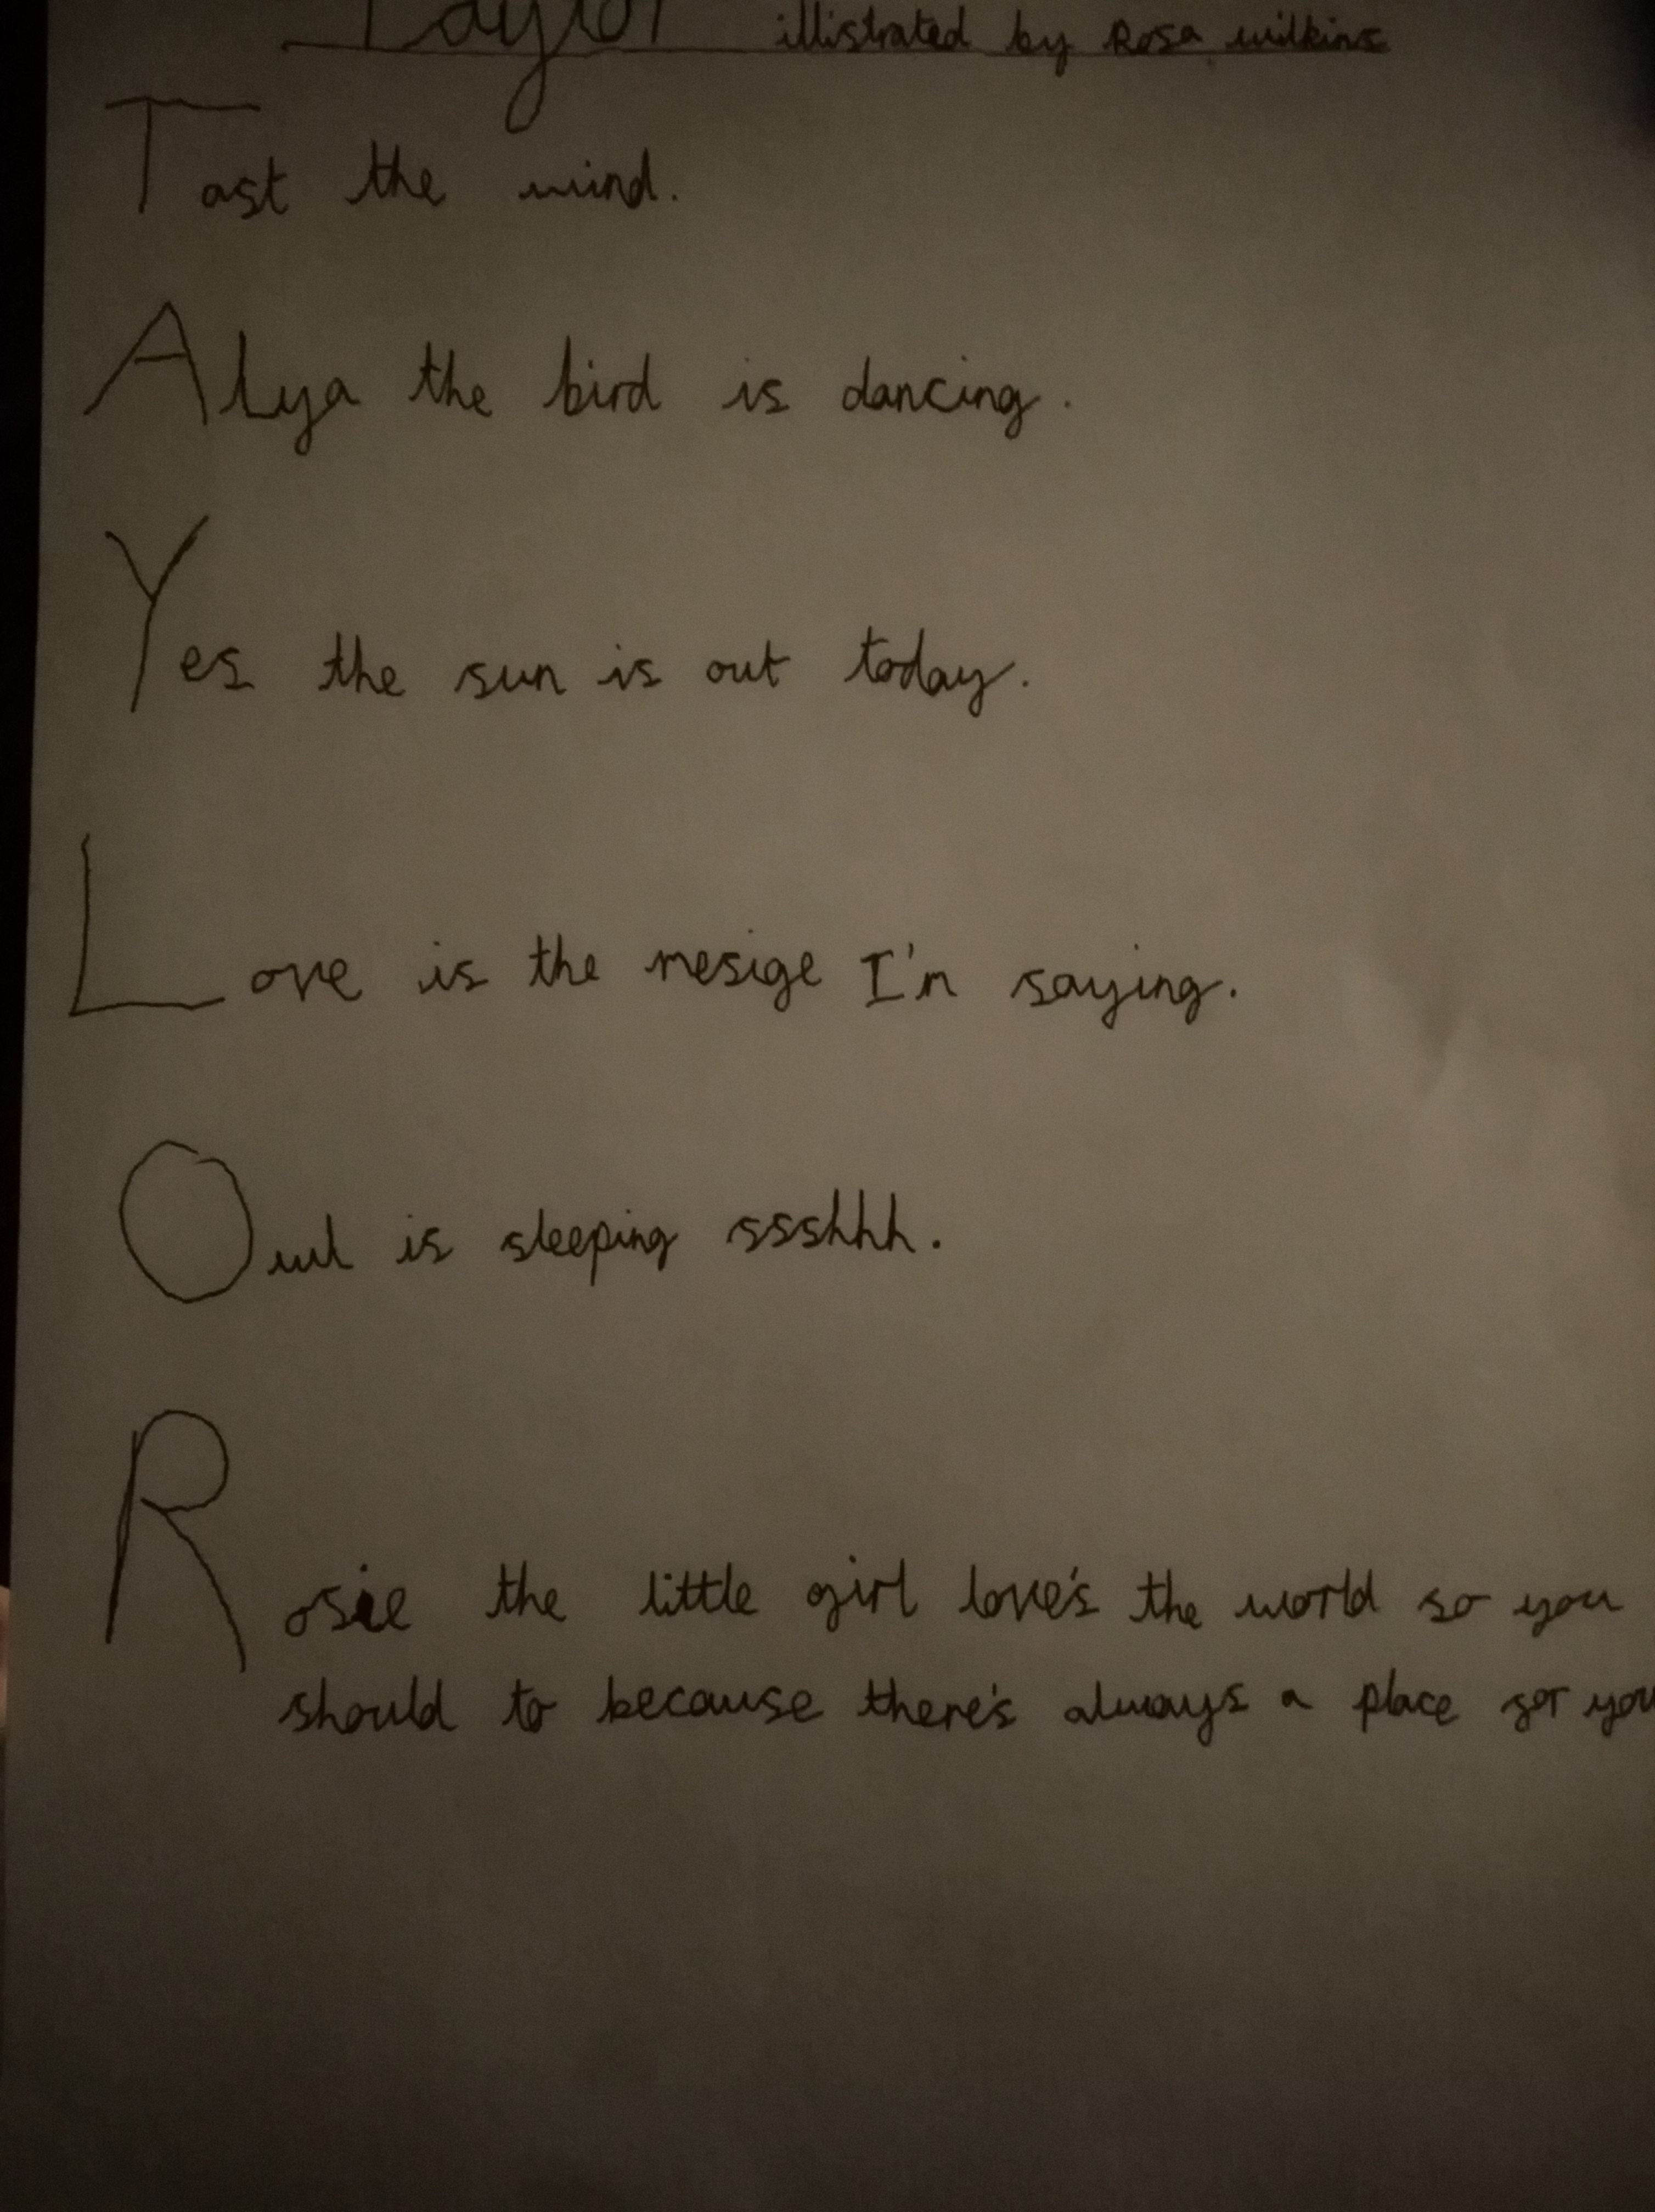 Taylor illistrated by Rosa wilkins
Tast the wind.
Alya the bird is dancing.
Yes the sun is out today.
Love is the mesige I'm saying.
Owl is sleeping ssshhh.
Rosie the little girl love's the world so you
should to because there's always a place for you